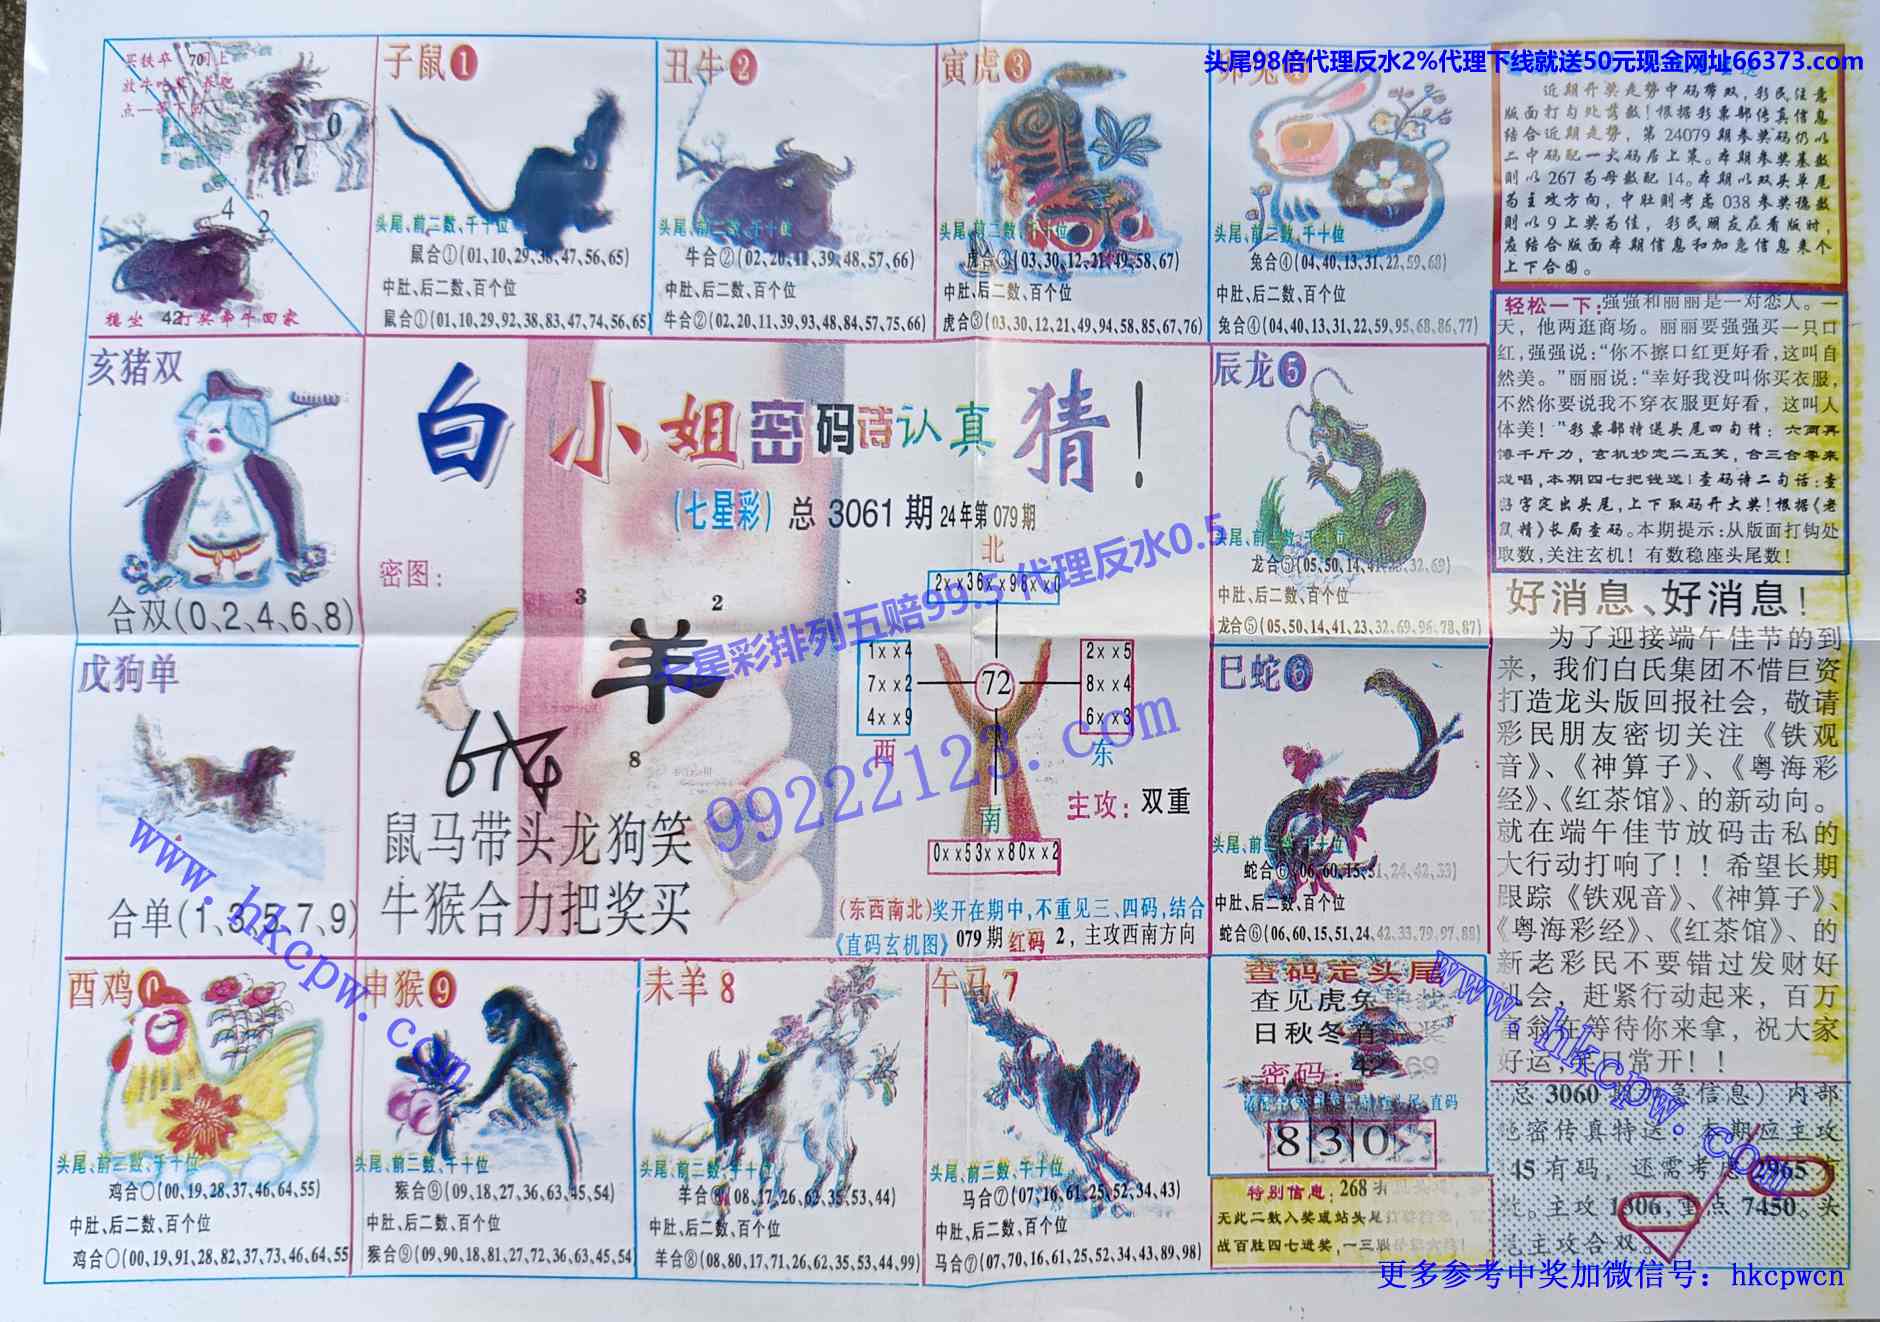 头尾98倍代理反水2%代理下线就送50元现金网址66373.com
买铁卒
70
0
7
4
2
稳坐 42 打奖牵牛回家
子鼠❶
头尾、前二数、千十位
鼠合①(01,10,29,38,47,56,65)
中肚、后二数、百个位
鼠合①(01,10,29,92,38,83,47,74,56,65)
丑牛❷
头尾、前二数、千十位
牛合②(02,20,11,39,48,57,66)
中肚、后二数、百个位
牛合②(02,20,11,39,93,48,84,57,75,66)
寅虎❸
头尾、前二数、千十位
虎合③(03,30,12,21,49,58,67)
中肚、后二数、百个位
虎合③(03,30,12,21,49,94,58,85,67,76)
卯兔
头尾、前二数、千十位
兔合④(04,40,13,31,22,59,68)
中肚、后二数、百个位
兔合④(04,40,13,31,22,59,95,68,86,77)
近期开奖走势中码带双，彩民注意
版面打勾处落数！根据彩票部传真信息
结合近期走势，第24079期参奖码仍以
二中码配一大码居上策。本期参奖基数
则以267为母数配14。本期以双头单尾
为主攻方向，中肚则考虑038参奖稳数
则以9上奖为佳，彩民朋友在看版时，
应结合版面本期信息和加急信息来个
上下合围。
轻松一下：强强和丽丽是一对恋人。一
天，他两逛商场。丽丽要强强买一只口
红，强强说：“你不擦口红更好看，这叫自
然美。”丽丽说：“幸好我没叫你买衣服，
不然你要说我不穿衣服更好看，这叫人
体美！”彩票部特送头尾四句精：六两再
博千斤力，玄机妙定二五芙，合三合零来
戏唱，本期四七把钱送！查码诗二句话：查
好字定出头尾，上下取码开大奖！根据《老
鼠精》长局查码。本期提示：从版面打钩处
取数，关注玄机！有数稳座头尾数！
亥猪双
合双(0、2、4、6、8)
戊狗单
合单(1、3、5、7、9)
白小姐密码诗认真猜！
(七星彩) 总 3061 期 24年第 079 期
密图：
3
2
羊
8
674
鼠马带头龙狗笑
牛猴合力把奖买
北
2××36××98××0
1××4
7××2
4××9
西
72
2××5
8××4
6××3
东
南
0××53××80××2
主攻：双重
(东西南北)奖开在期中，不重见三、四码，结合
《直码玄机图》079期 红码 2，主攻西南方向
七星彩排列五赔99.5 代理反水0.5
99222123.com
辰龙❺
头尾、前二数、千十位
龙合⑤(05,50,14,41,23,32,69)
中肚、后二数、百个位
龙合⑤(05,50,14,41,23,32,69,96,78,87)
巳蛇❻
头尾、前二数、千十位
蛇合⑥(06,60,15,51,24,42,33)
中肚、后二数、百个位
蛇合⑥(06,60,15,51,24,42,33,79,97,88)
好消息、好消息！
为了迎接端午佳节的到
来，我们白氏集团不惜巨资
打造龙头版回报社会，敬请
彩民朋友密切关注《铁观
音》、《神算子》、《粤海彩
经》、《红茶馆》、的新动向。
就在端午佳节放码击私的
大行动打响了！！希望长期
跟踪《铁观音》、《神算子》、
《粤海彩经》、《红茶馆》、的
新老彩民不要错过发财好
机会，赶紧行动起来，百万
富翁在等待你来拿，祝大家
好运，笑口常开！！
www.hkcpw.com
酉鸡0
头尾、前二数、千十位
鸡合○(00,19,28,37,46,64,55)
中肚、后二数、百个位
鸡合○(00,19,91,28,82,37,73,46,64,55
申猴❾
头尾、前二数、千十位
猴合⑨(09,18,27,36,63,45,54)
中肚、后二数、百个位
猴合⑨(09,90,18,81,27,72,36,63,45,54)
未羊8
头尾、前二数、千十位
羊合⑧(08,17,26,62,35,53,44)
中肚、后二数、百个位
羊合⑧(08,80,17,71,26,62,35,53,44,99)
午马7
头尾、前二数、千十位
马合⑦(07,16,61,25,52,34,43)
中肚、后二数、百个位
马合⑦(07,70,16,61,25,52,34,43,89,98)
查码定头尾
查见虎兔
日秋冬有
密码：42 69
8|3|0
特别信息：268
无此二数入奖或站头尾
战百胜四七进奖，一三
www.hkcpw.com
总 3060 信息）内部
绝密传真特送 本期应主攻
45有码，还需考虑2965有
主攻1306，重点7450、头
尾主攻合双。
更多参考中奖加微信号：hkcpwcn